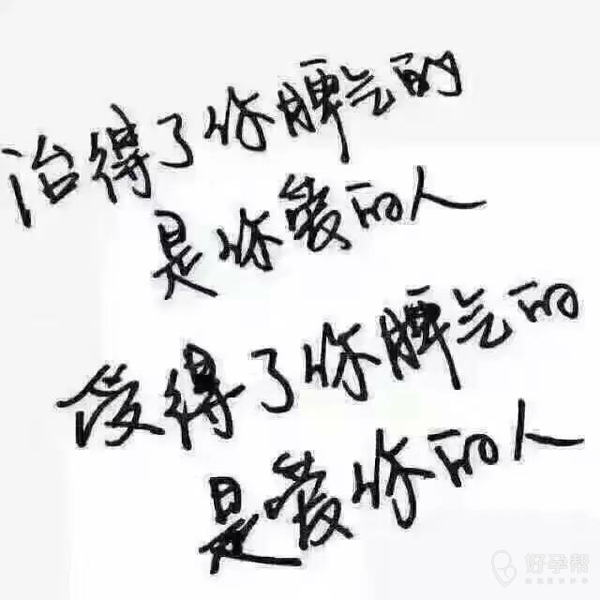 治得了你脾气的
是你爱的人
受得了你脾气的
是爱你的人
好孕帮